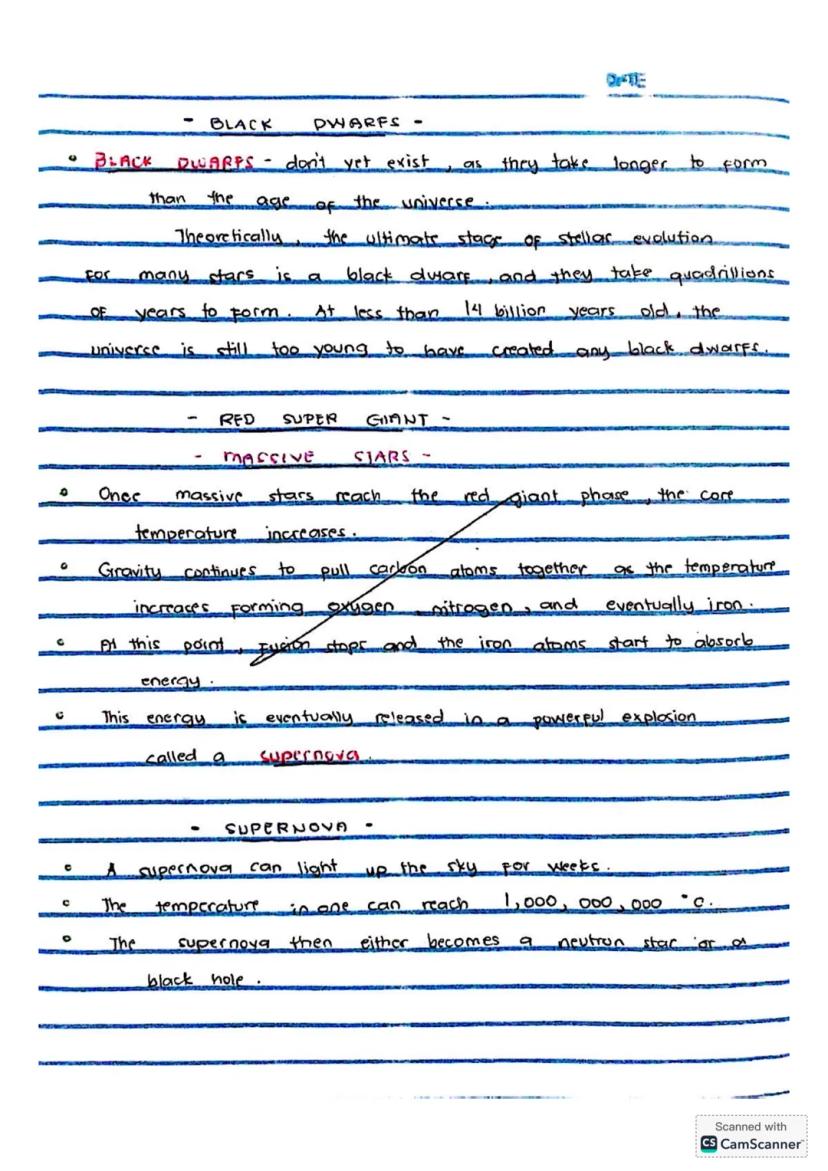 DATE
- BLACK DWARFS -
• BLACK DWARFS - don't yet exist, as they take longer to form
than the age of the universe.
Theoretically, the ultimate stage of stellar evolution
for many stars is a black dwarf, and they take quadrillions
of years to form. At less than 14 billion years old, the
universe is still too young to have created any black dwarfs.
- RED SUPER GIANT -
- MASSIVE STARS -
• Once massive stars reach the red giant phase, the core
temperature increases.
• Gravity continues to pull carbon atoms together as the temperature
increases forming oxygen, nitrogen, and eventually iron.
• At this point, fusion stops and the iron atoms start to absorb
energy.
• This energy is eventually released in a powerful explosion
called a supernova.
- SUPERNOVA -
• A supernova can light up the sky for weeks.
• The temperature in one can reach 1,000,000,000 °C.
• The supernova then either becomes a neutron star or a
black hole.
Scanned with
CS CamScanner